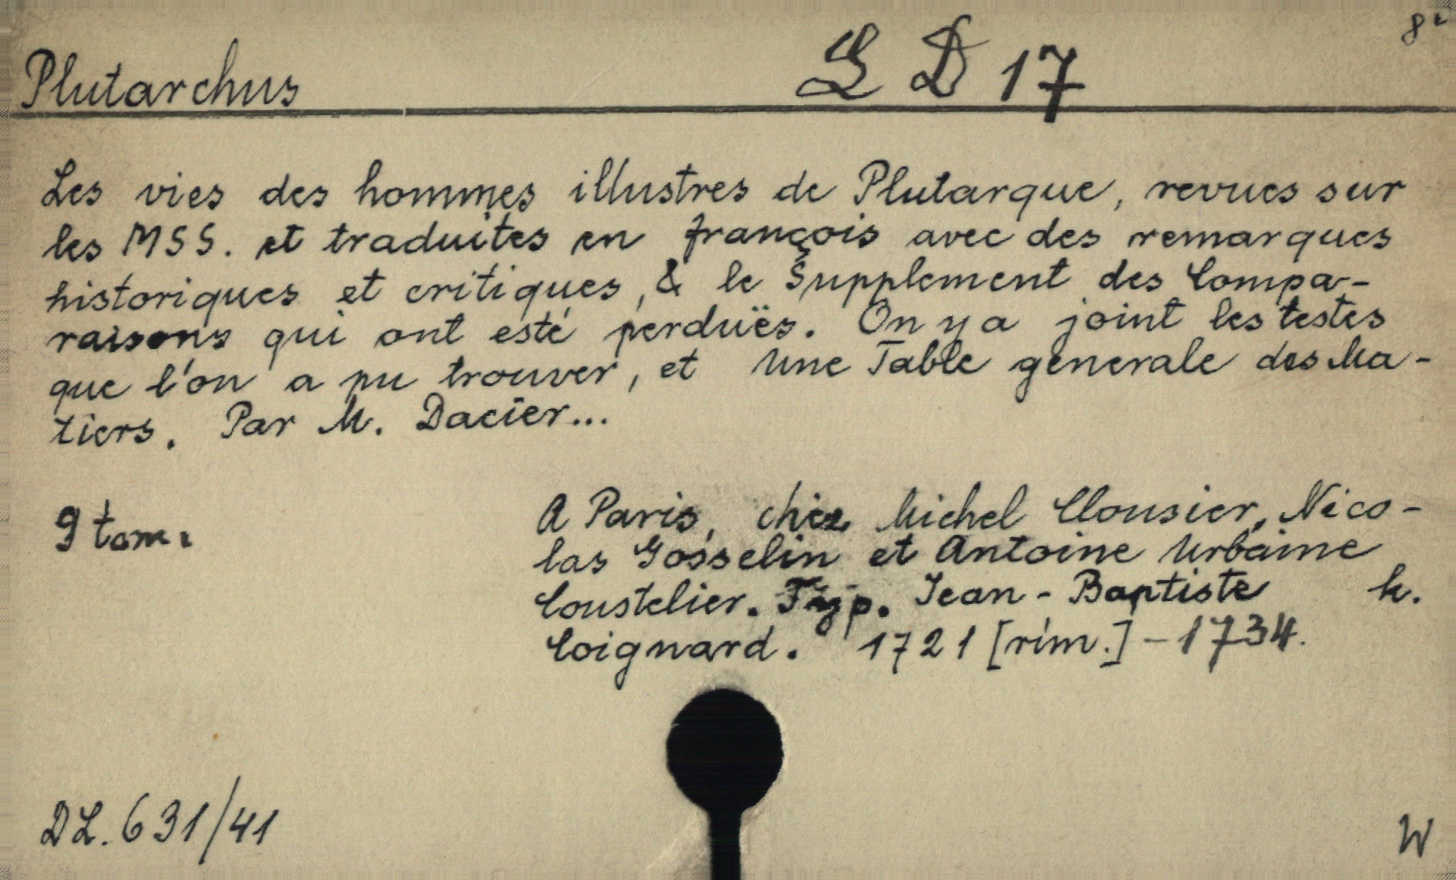 8°
Plutarchus L D 17
Les vies des hommes illustres de Plutarque, revues sur
les MSS. et traduites en françois avec des remarques
historiques et critiques, & le Supplement des Compa-
raisons qui ont esté perduës. On y a joint les testes
que l'on a pu trouver, et Une Table generale des Ma-
tiers. Par M. Dacier...
9 tom.
A Paris, chez Michel Clousier, Nico-
las Gosselin et Antoine Urbaine
Coustelier. Typ. Jean-Baptiste k.
Coignard. 1721 [rim.] - 1734.
DL. 631/41
W